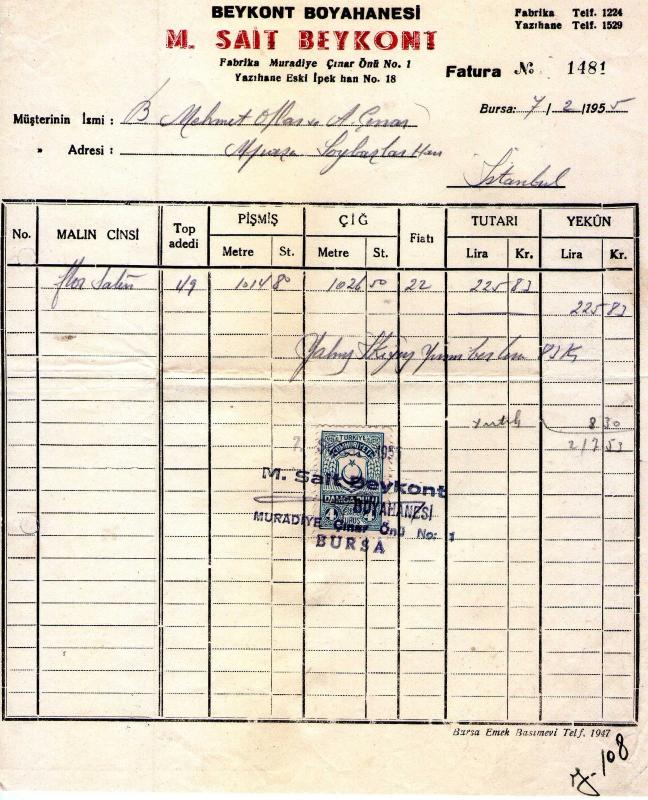 BEYKONT BOYAHANESİ
M. SAİT BEYKONT
Fabrika Muradiye Çınar Önü No. 1
Yazıhane Eski İpek han No. 18
Fabrika Telf. 1224
Yazıhane Telf. 1529
Fatura № 1481
Bursa: 7/2/1955
Müşterinin İsmi : B Mehmet
» Adresi :
İstanbul
No. MALIN CİNSİ Top adedi PİŞMİŞ ÇİĞ Fiatı TUTARI YEKÛN
Metre St. Metre St. Lira Kr. Lira Kr.
flor Saten 49 1014 80 1026 50 22 225 83
225 83
Yalnız İkiyüz Yirmi beş lira 83 Kş
8 30
217 53
TÜRKİYE
CUMHURİYETİ
DAMGA
4
M. Sait Beykont
BOYAHANESİ
MURADİYE Çınar Önü No: 1
BURSA
Bursa Emek Basımevi Telf. 1947
108